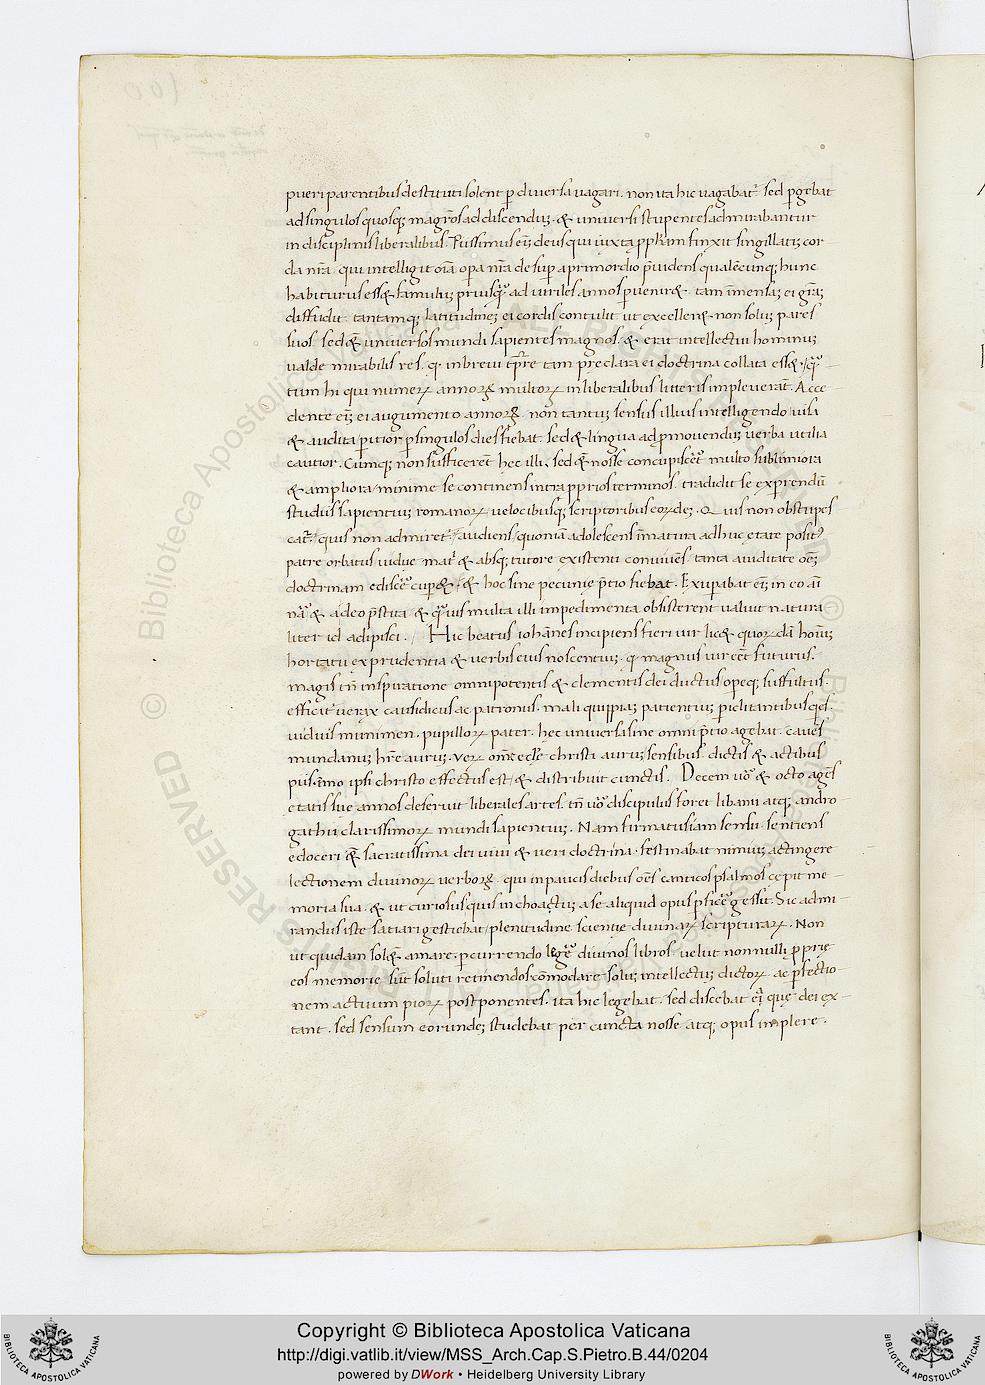 pueri parentibus destituti solent p diuersa uagari. non ita hic uagabat' sed pgebat
ad singulos quosq; magros addiscendu; & uniuersi stupentes admirabantur
in disciplinis liberalibus. Piissimus eni deus qui iuxta ppham finxit singillati cor-
da nra. qui intelligit oia opa nra desup a primordio puidens qualecunq; hunc
habiturus ess& famulu; priusq ad uiriles annos puenir&. tam imensa; ei gra;
diffudit. tantamq; latitudine; ei cordis contulit ut excellen& non solu; pares
suos. sed & uniuersos mundi sapientes magnos. & erat intellectui hominu;
ualde mirabilis res. q. in breui tpre tam preclara ei doctrina collata ess&.
tum hi qui numeru annoru multoru in liberalibus litteris impleuerat. Acce-
dente eni ei augumento annoru non tantu; sensus illius intelligendo uisa
& audita pitior p singulos dies fiebat. sed & lingua ad pmouendu; uerba utilia
cautior. Cumq; non sufficeret hec illi, sed & nosse concupisceret multo sublimiora
& ampliora minime se continens intra pprios terminos. tradidit se exprendu
studiis sapientiu; romanoru uelocibusq; scriptoribus eorude;. Quis non obstupes-
cat? quis non admiret? audiens quoniam adolescens imatura adhuc etate posit'
patre orbatus uidue mat' & absq; tutore existenti conuiues tanta auiditate oem
doctrinam ediscere cuper& & hoc sine pecunie ptio fiebat. Exupabat eni in eo ai
na & adeo pstita. & quis multa illi impedimenta obsisterent ualuit natura
liter id adipisci. Hic beatus iohannes incipiens fieri uir lic& quorunda homu;
hortatu ex prudentia & uerbis eius noscentiu;. q. magnus uir eet futurus.
magis tn inspiratione omnipotentis & clementis dei ductus opeq; suffultus.
efficit' uerax causidicus ac patronus. mali quippia; patientiu; piclitantibusq;
uiduis munimen. pupilloru pater. hec uniuersa sine omni ptio agebat. caues
mundanu; hre auru;. ueru ome eccle christi auru; sensibus. dictis & actibus
piis. imo ipsi christo effectus est & distribuit cunctis. Decem uo & octo ages
etatis sue annos deseruit liberales artes. tn uo discipulus foret libanii atq; andro-
gathii clarissimoru mundi sapientiu;. Nam firmatus iam sensu. sentiens
edoceri & sacratissima dei uiui & ueri doctrina. festinabat nimiu; attingere
lectionem diuinoru uerboru. qui in paucis diebus oes canticos psalmos cepit me-
moria sua. & ut curiosus quis inchoatu; a se aliquid opus pficere gessit. Sic admi-
randus iste satiari gestiebat plenitudine scientie diuinaru scripturaru. Non
ut quidam solent amare. pcurrendo legere diuinos libros. uelut nonnulli pprie
eos memorie sui soluti retinendos comodare. solu; intellectu; dictoru ac pfectio-
nem actuum pioru postponentes. ita hic legebat. sed discebat ei que dei ex-
tant. sed sensum eorunde; studebat per cuncta nosse atq; opus implere.
Copyright © Biblioteca Apostolica Vaticana
http://digi.vatlib.it/view/MSS_Arch.Cap.S.Pietro.B.44/0204
powered by DWork • Heidelberg University Library